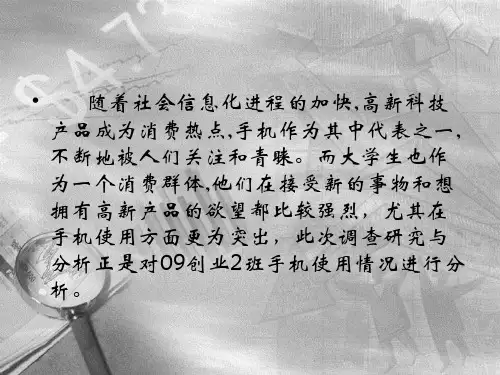 $4.73
• 随着社会信息化进程的加快,高新科技
产品成为消费热点,手机作为其中代表之一,
不断地被人们关注和青睐。而大学生也作
为一个消费群体,他们在接受新的事物和想
拥有高新产品的欲望都比较强烈，尤其在
手机使用方面更为突出，此次调查研究与
分析正是对09创业2班手机使用情况进行分
析。